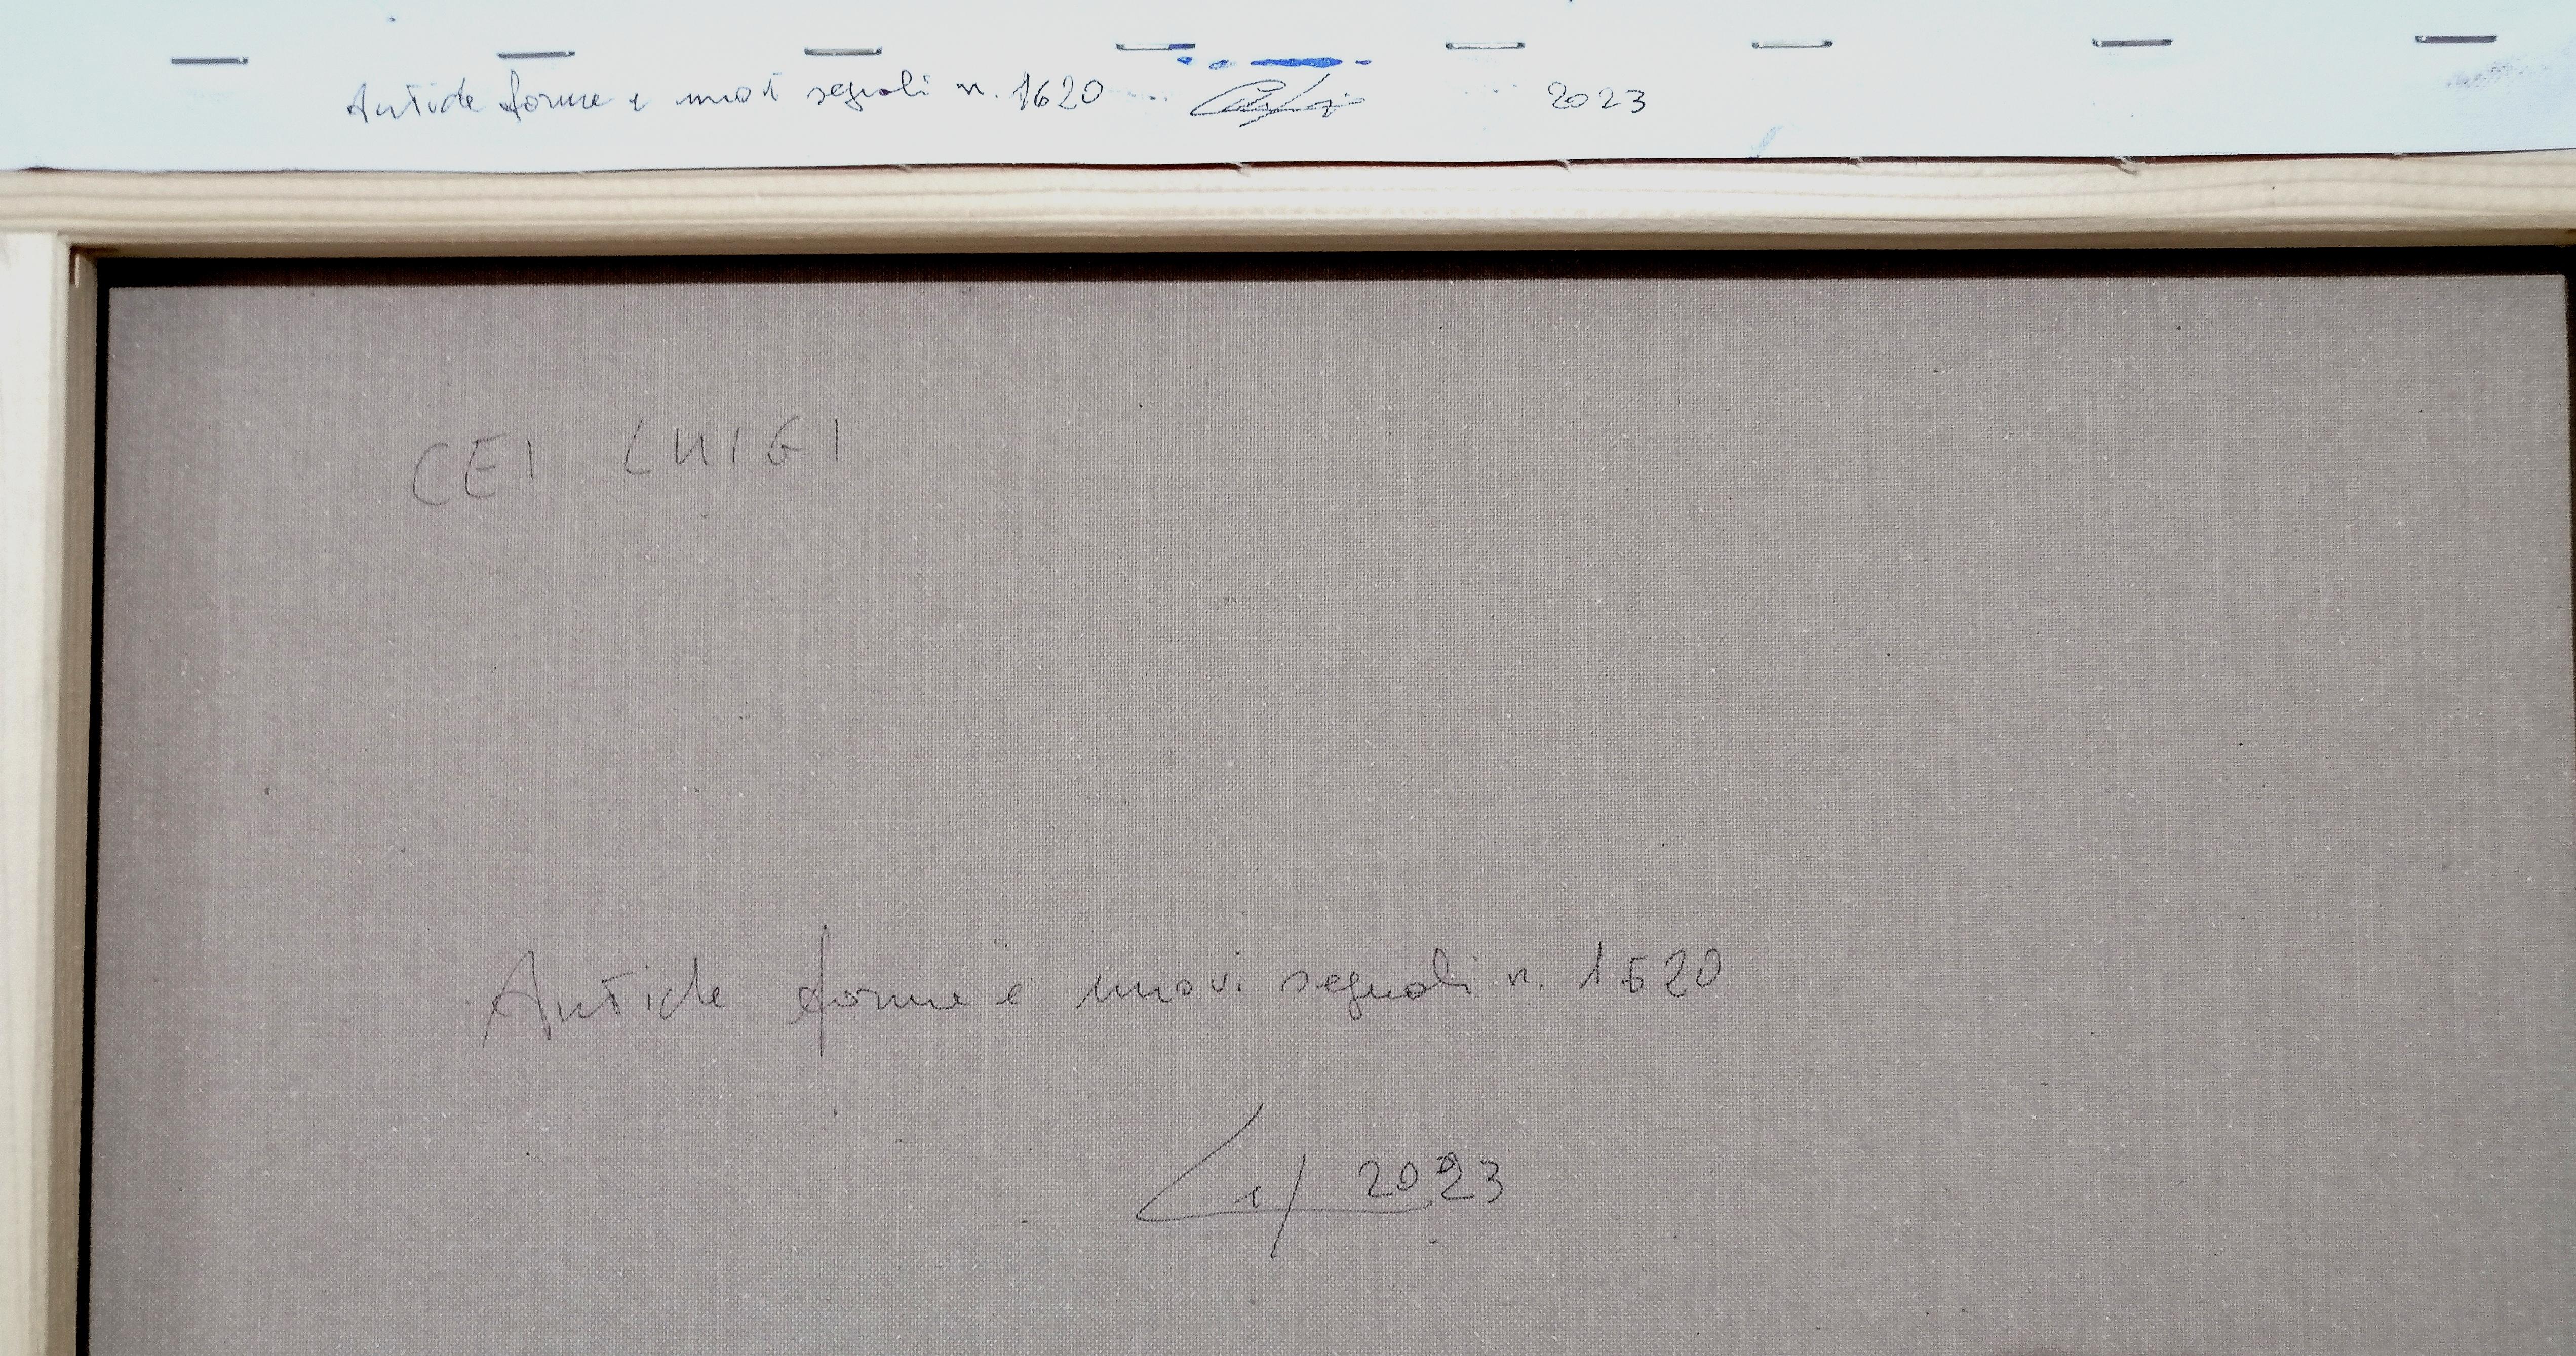 Antiche forme e nuovi segnali n. 1620 2023
CEI LUIGI
Antiche forme e nuovi segnali n. 1620
2023